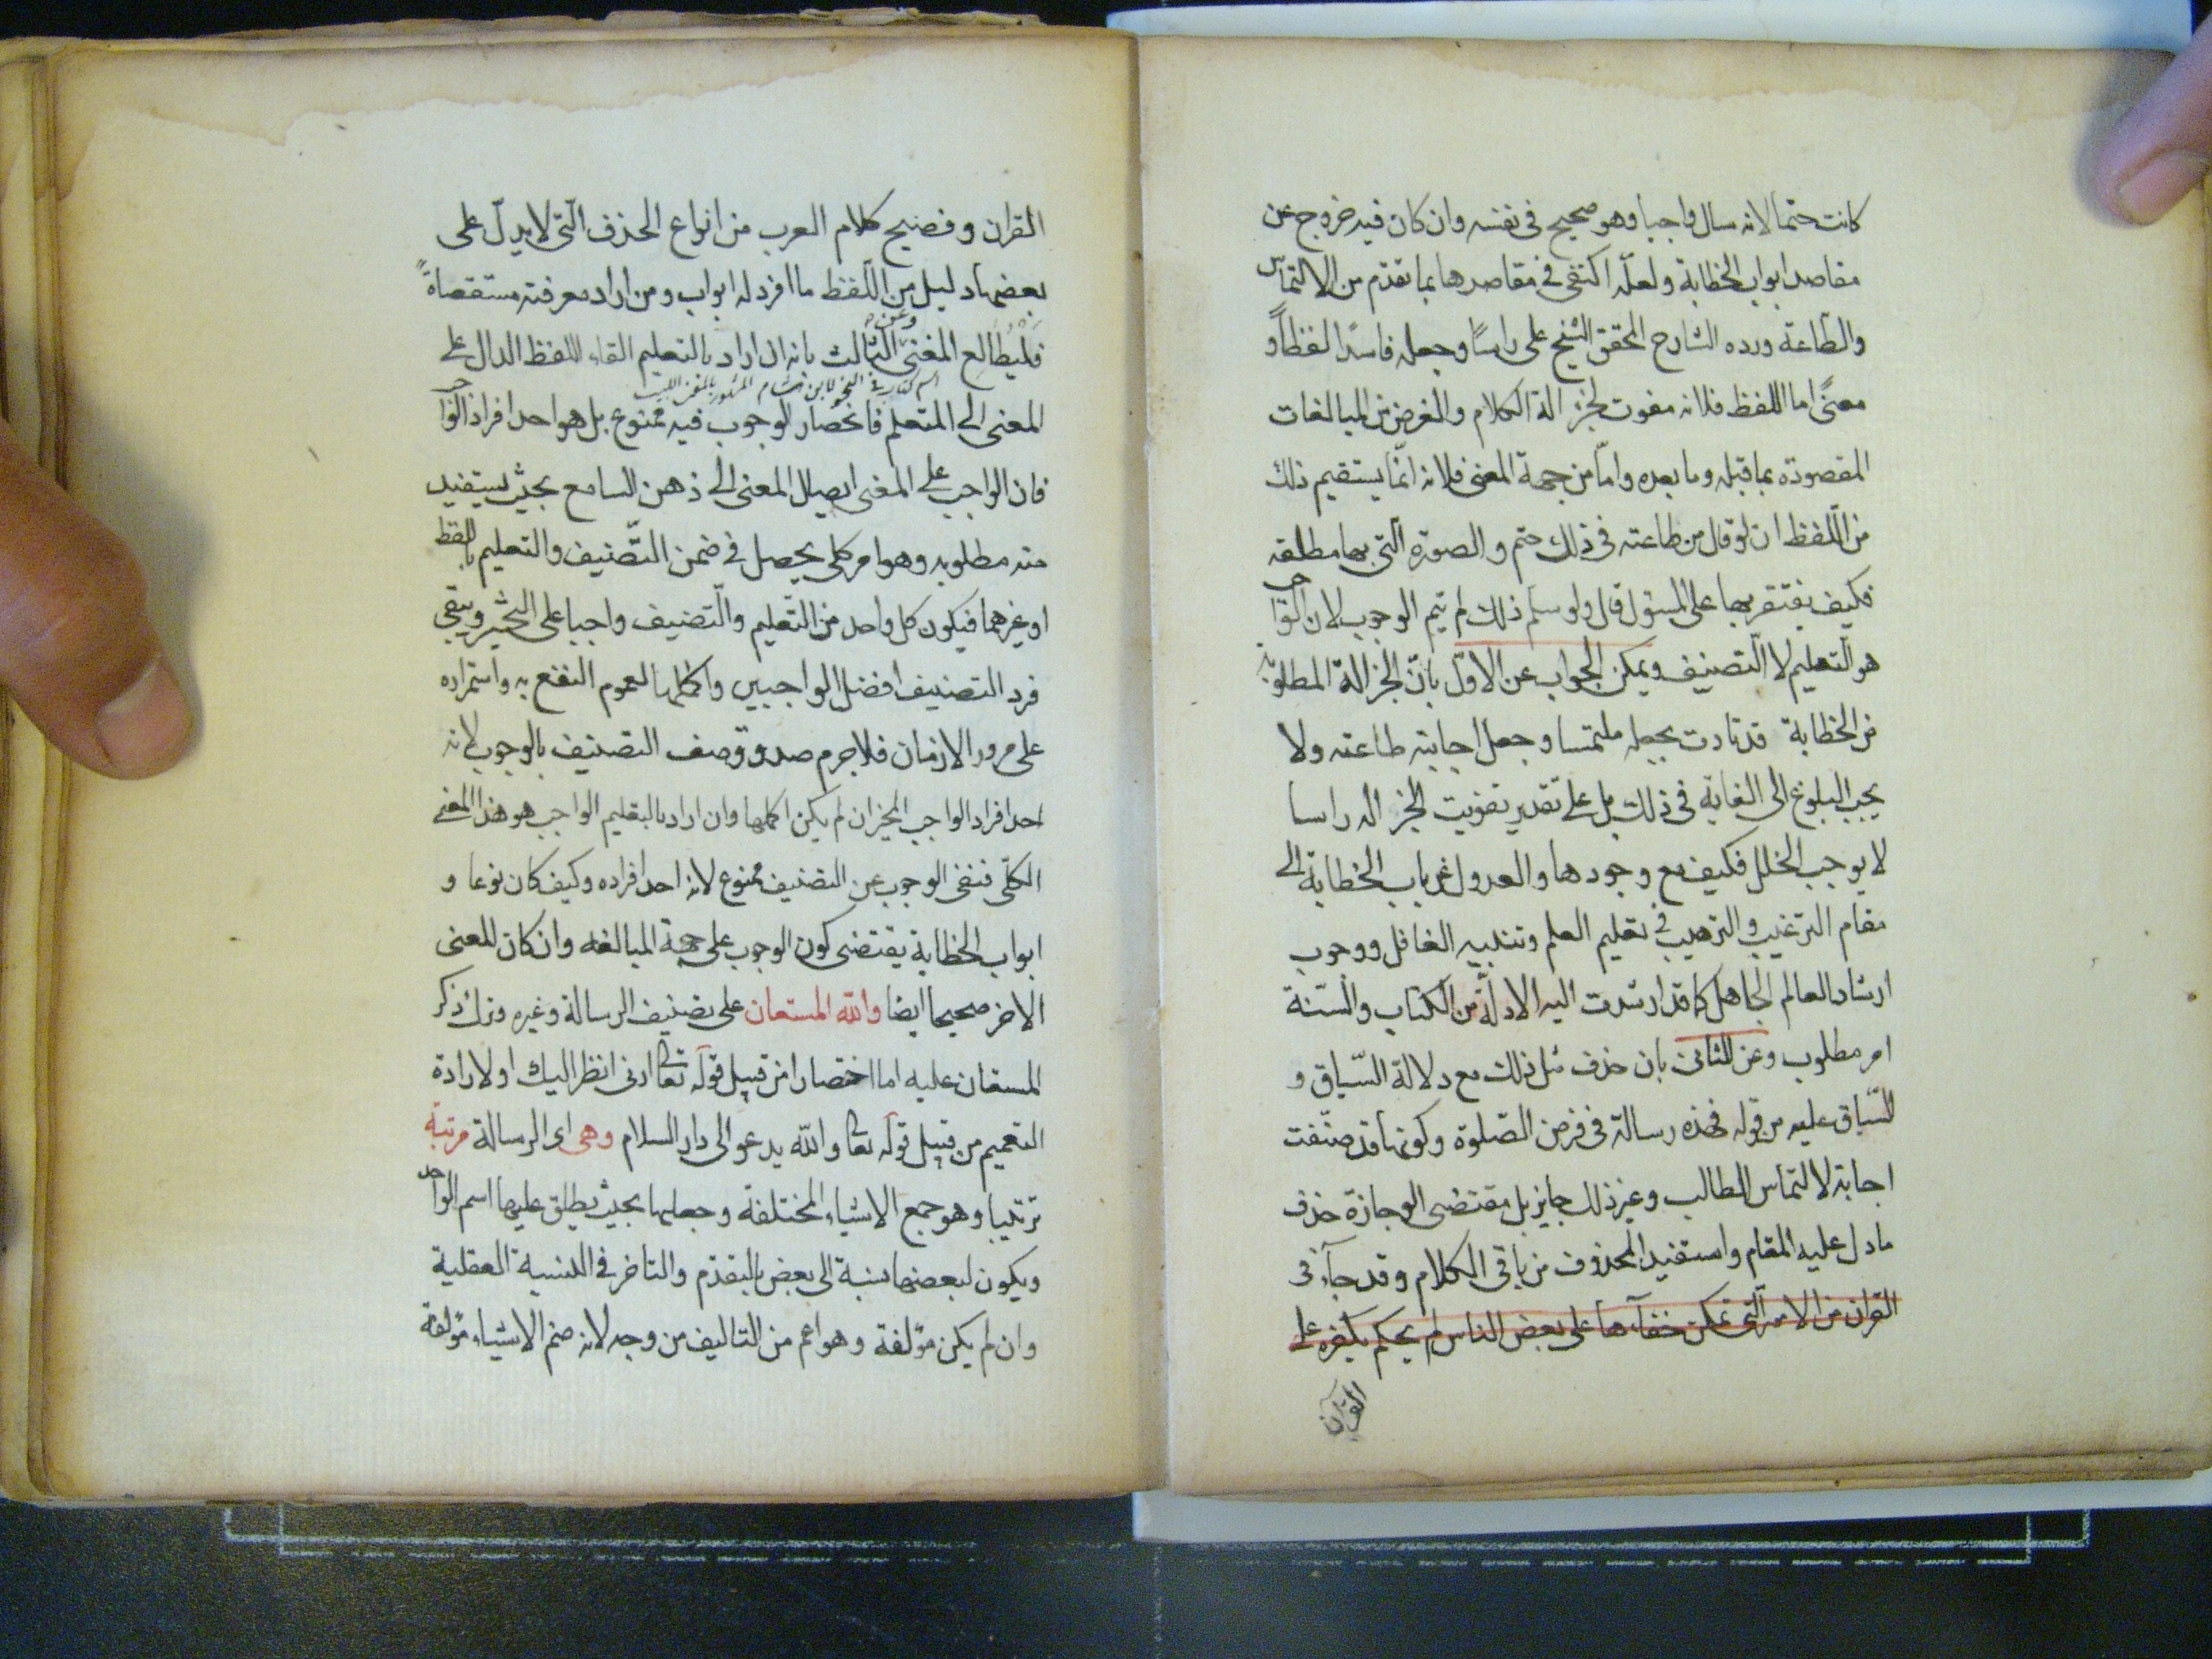 كانت حتما لانه سال واجبا وهو صحيح فى نفسه وان كان فيه خروج عن
مقاصد ابواب الخطابة ولعلّه اكتفى فى مقاصدها بما تقدّم من الالتماس
والطّاعة ورده الشارح المحقق الشيخ على راسًا وجعله فاسدًا لفظًا و
معنًى اما اللفظ فلانه مفوت لجزالة الكلام والغرض من المبالغات
المقصودة بما قبله وما بعده وامّا من جهة المعنى فلانه انّما يستقيم ذلك
من اللّفظ ان لو قال من طاعته فى ذلك حتم والصورة الّتى بها مطلقه
فكيف يفتقر بها على المسؤل قال ولو سلم ذلك لم يتم الوجوب لان الواجب
هو التّعليم لا التّصنيف ويمكن الجواب عن الاوّل بانّ الجزالة المطلوبة
من الخطابة قد تادت بجعله ملتمسا وجعل اجابته طاعته ولا
يجب البلوغ الى الغاية فى ذلك بل على تقدير تفويت الجزاله راسا
لا يوجب الخلل فكيف مع وجودها والعدول عن باب الخطابة الى
مقام الترغيب والترهيب فى تعليم العلم وتنبيه الغافل ووجوب
ارشاد العالم الجاهل كما قد ارشدت اليه الادلّة من الكتاب والسّنة
امر مطلوب وعن الثانى بان حذف مثل ذلك مع دلالة السّياق و
السّباق عليه من قوله فهذه رسالة فى فرض الصّلوة وكونها قد صنّفت
اجابة لالتماس الطالب وغير ذلك جايز بل مقتضى الوجازة حذف
ما دل عليه المقام واستفيد المحذوف من باقى الكلام وقد جآء فى
القران من الامور الّتى يمكن خفآءها على بعض الناس لم يحكم بكفره على
القرآن
القران وفصيح كلام العرب من انواع الحذف الّتى لا يدلّ على
بعضها دليل من اللّفظ ما افرد له ابواب ومن اراد معرفته مستقصاةً
وعن
فَلْيُطالع المغنى الثالث بانه ان اراد بالتعليم القاء اللفظ الدال على
اسم كتاب فى النحو لابن هشام المشهور بالمغنى اللبيب
المعنى الى المتعلم فانحصار الوجوب فيه ممنوع بل هو احد افراد الواجب
فان الواجب على المغنى ايصال المعنى الى ذهن السامع بحيث يستفيد
منه مطلوبه وهو امر كلى يحصل فى ضمن التّصنيف والتعليم باللفظ
او غيرهما فيكون كل واحد من التّعليم والتّصنيف واجبا على التخيير ويبقى
فرد التصنيف افضل الواجبين واكملها لعموم النفع به واستمراره
على مرور الازمان فلا جرم صدق وصف التصنيف بالوجوب لانه
احد افراد الواجب المخير ان لم يكن اكملها وان اراد بالتعليم الواجب هو هذا المعنى
الكلّى فنفى الوجوب عن التصنيف ممنوع لانه احد افراده وكيف كان نوعا و
ابواب الخطابة يقتضى كون الوجوب على جهة المبالغه وان كان للمعنى
الاخر صحيحا ايضا والله المستعان على تصنيف الرسالة وغيره وترك ذكر
المستعان عليه اما اختصارا من قبيل قوله تعالى ارنى انظر اليك او لارادة
التعميم من قبيل قوله تعالى والله يدعو الى دار السلام وهى اى الرسالة مرتبة
ترتيبا وهو جمع الاشياء المختلفة وجعلها بحيث يطلق عليها اسم الواحد
ويكون لبعضها نسبة الى بعض بالتقدّم والتاخر فى النسبة العقلية
وان لم يكن مؤلفة وهو اعم من التاليف من وجه لانه ضم الاشياء مؤلفة